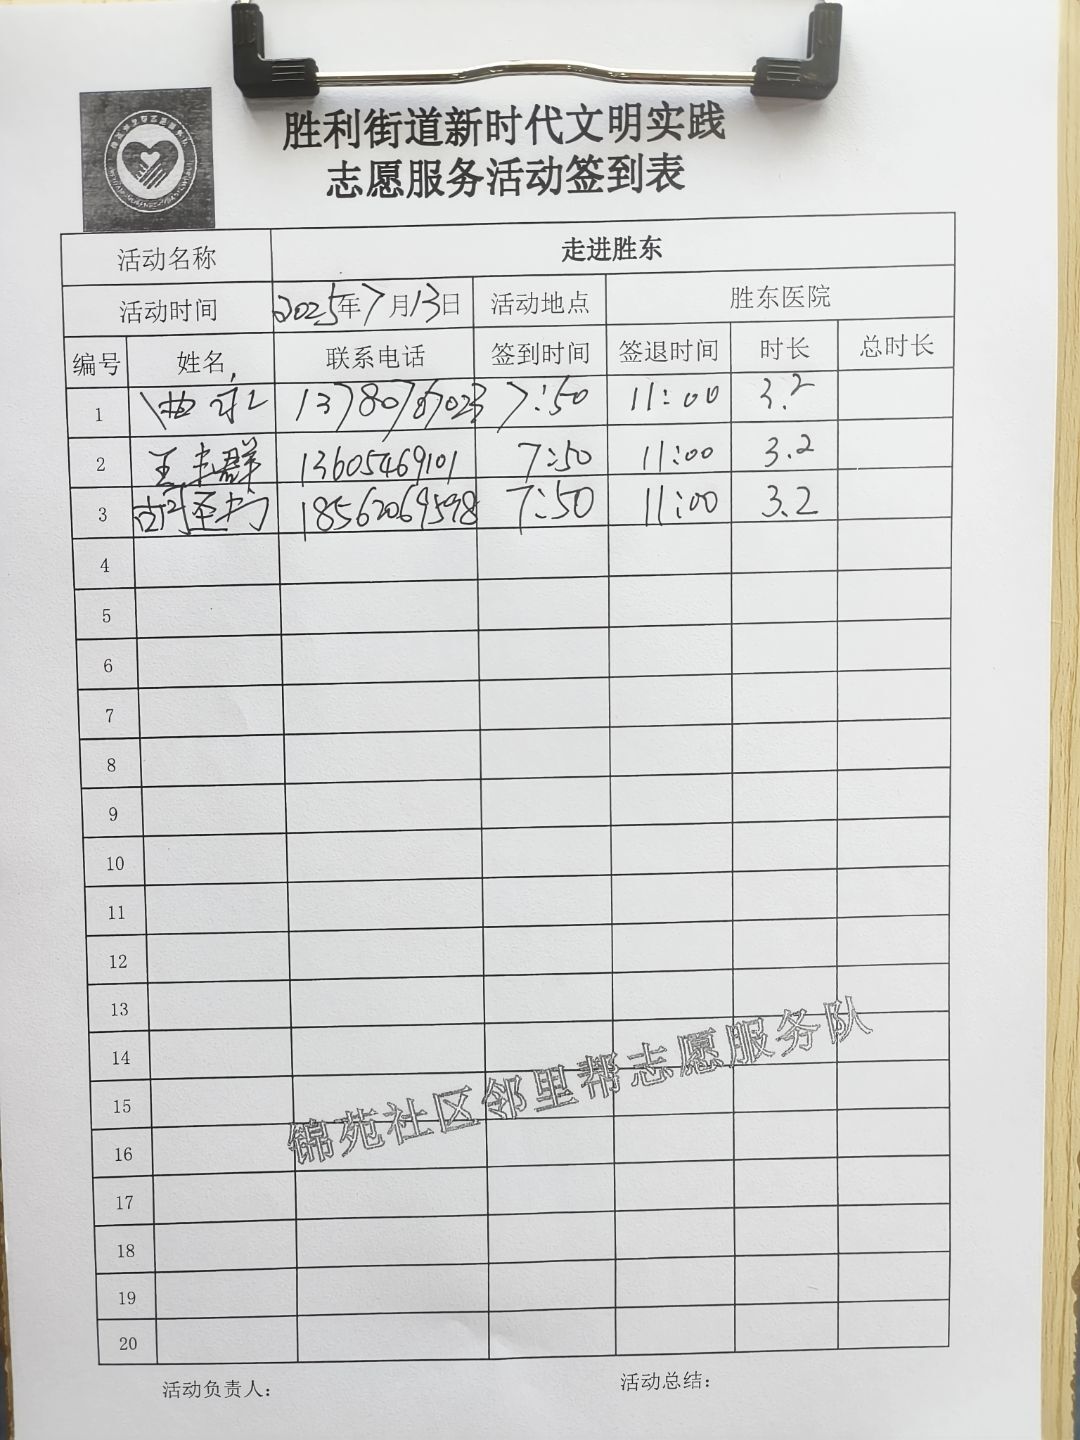 胜利街道新时代文明实践
志愿服务活动签到表
活动名称 走进胜东
活动时间 2025年7月13日 活动地点 胜东医院
编号 姓名 联系电话 签到时间 签退时间 时长 总时长
1 13780787023 7:50 11:00 3.2
2 王丰群 13605469101 7:50 11:00 3.2
3 18562069598 7:50 11:00 3.2
4
5
6
7
8
9
10
11
12
13
14
15
16
17
18
19
20
锦苑社区邻里帮志愿服务队
活动负责人： 活动总结：